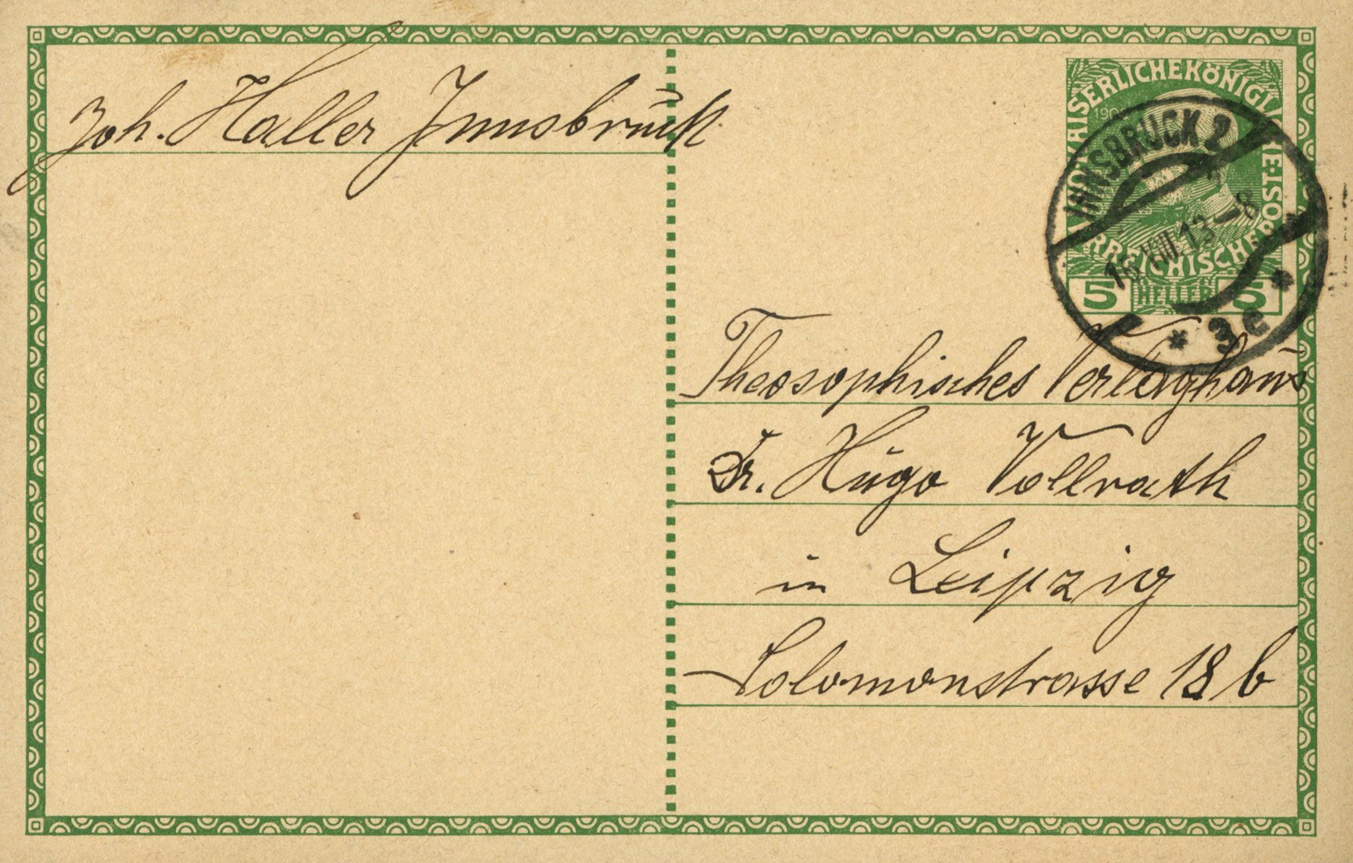 Joh. Haller Innsbruck
KAISERLICHE KÖNIGL
ÖSTERREICHISCHE POST
5 HELLER 5
INNSBRUCK 2
16 VIII 13 - 8
* 3c *
Theosophisches Verlaghaus
Dr. Hugo Vollrath
in Leipzig
Solomonstrasse 18 b